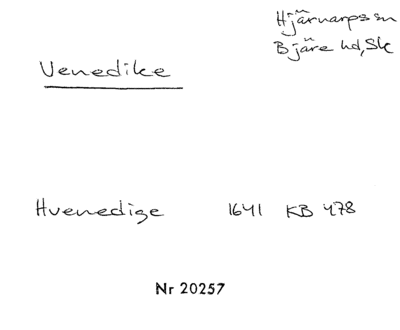 Hjärnarps sn
Bjäre hd, Sk
Venedike
Hvenedige 1641 KB 478
Nr 20257